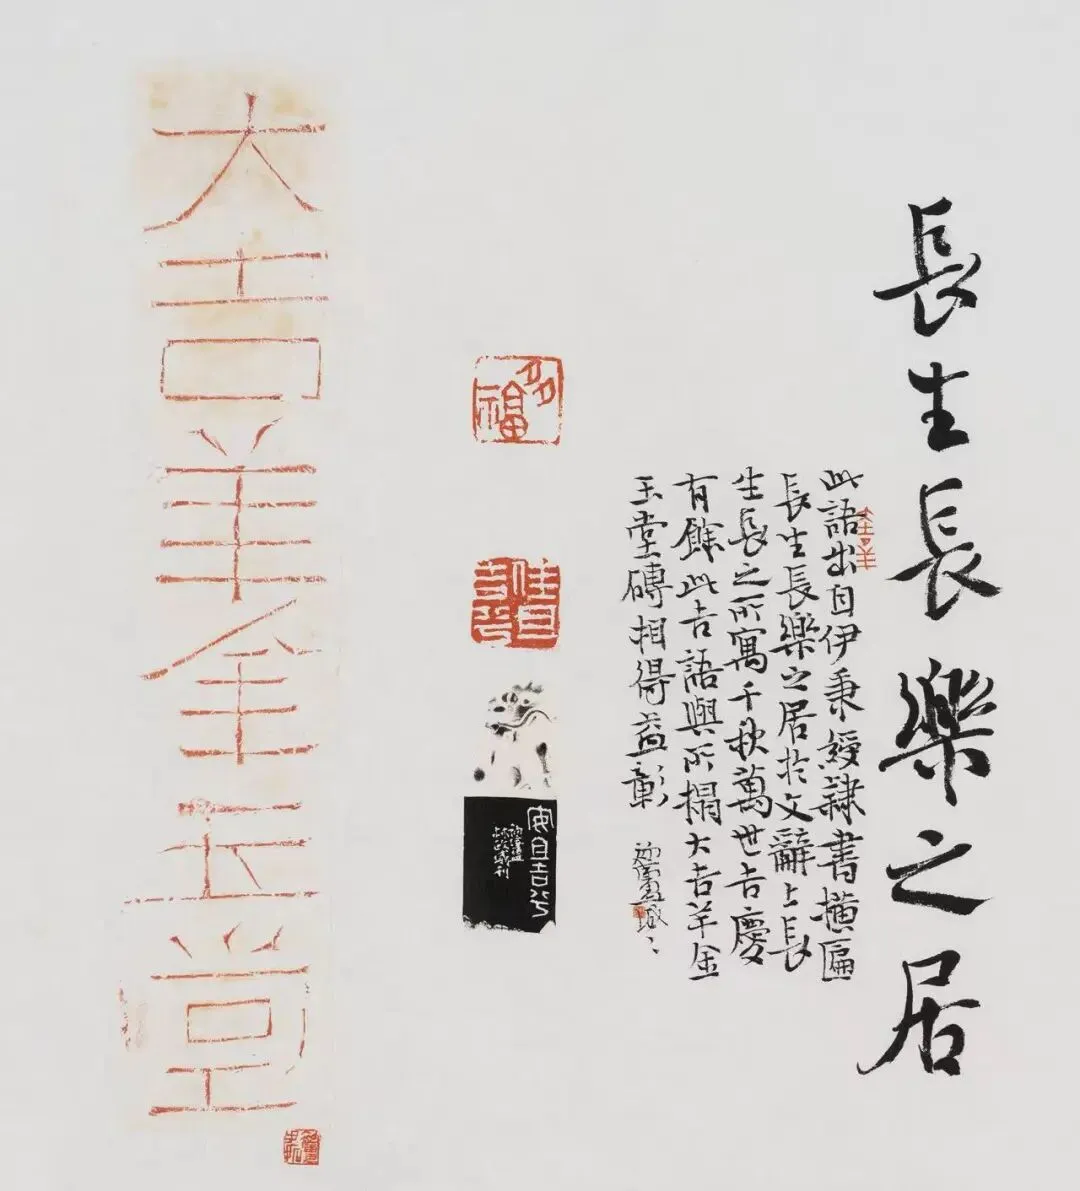 長生長樂之居
大吉羊
此語出自伊秉綬隸書橫匾
長生長樂之居於文辭上長
生長之所寓千秋萬世吉慶
有餘此吉語與所搨大吉羊金
玉堂磚相得益彰
多福
安且吉兮
大吉羊金玉堂